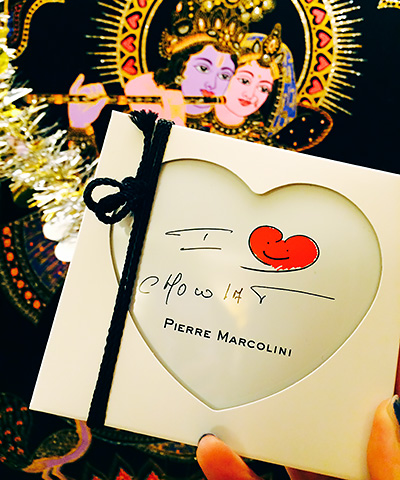 I
CHOCOLAT
PIERRE MARCOLINI